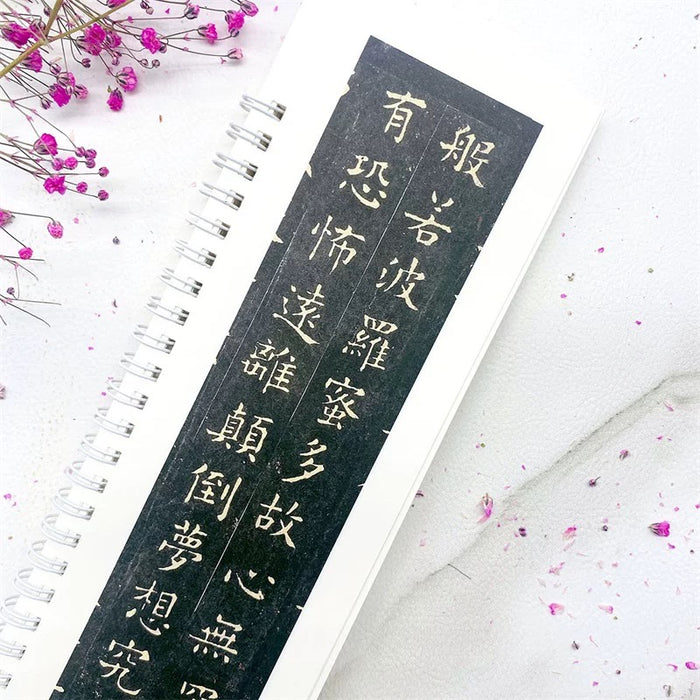 般若波羅蜜多故心無
有恐怖遠離顛倒夢想究